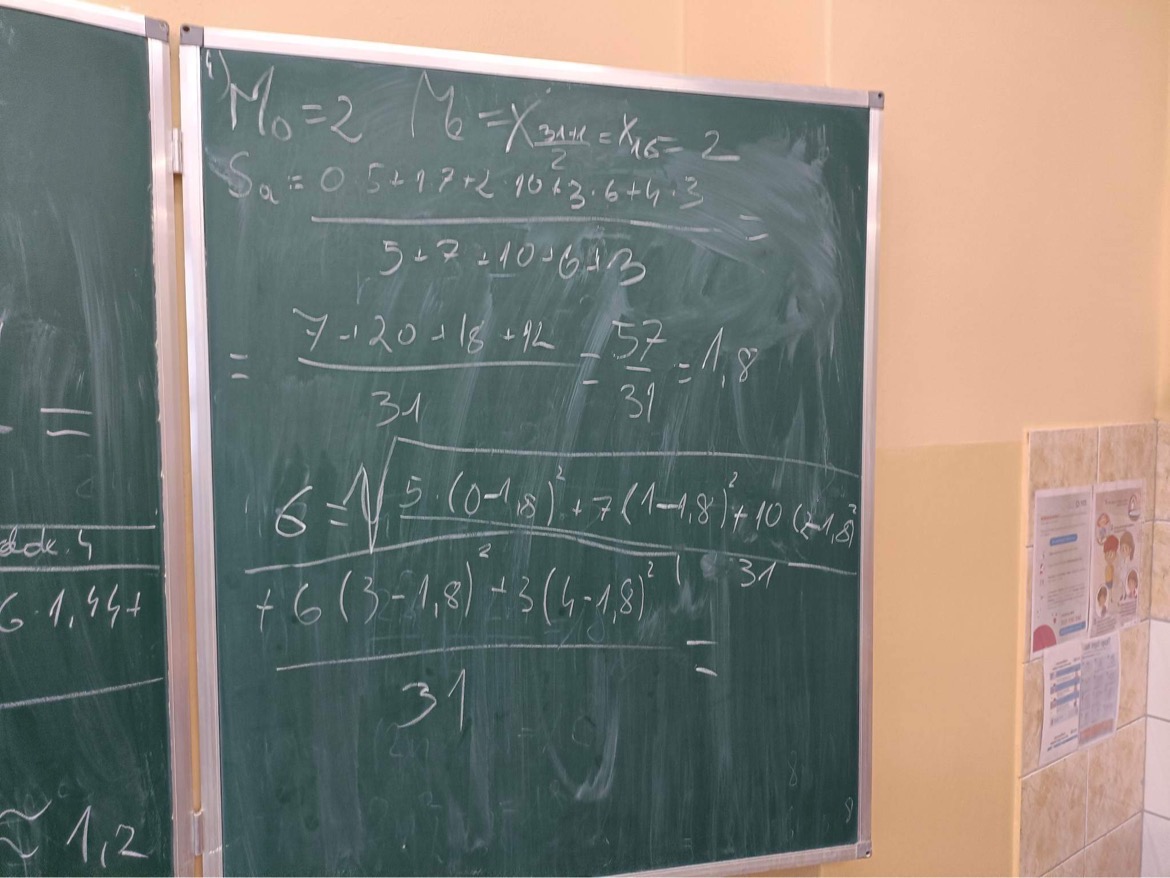 4) M₀ = 2 Mₑ = X_{\frac{31+1}{2}} = X₁₆ = 2
Sₐ = \frac{0·5+1·7+2·10+3·6+4·3}{5+7+10+6+3} =
= \frac{7+20+18+12}{31} = \frac{57}{31} = 1,8
6 = \sqrt{\frac{5·(0-1,8)²+7(1-1,8)²+10(2-1,8)²}{31}}
\frac{+6(3-1,8)²+3(4-1,8)²}{31} =
=
6·1,44+
≈ 1,2